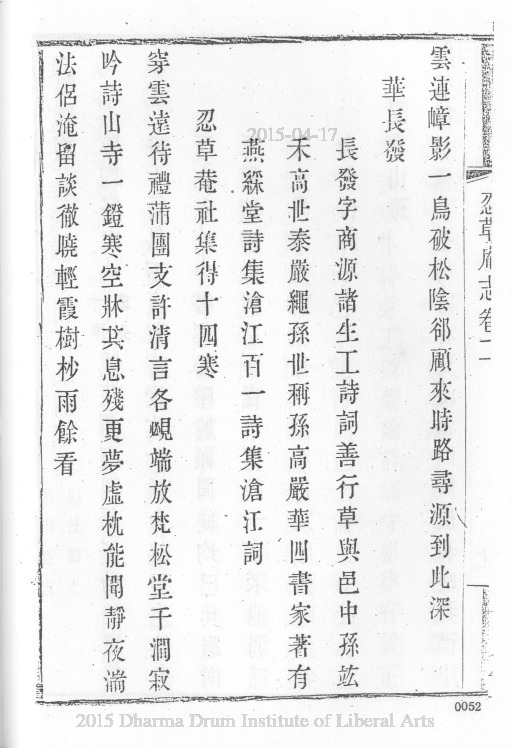 忍草庵志卷二
雲連嶂影一鳥破松陰郤顧來時路尋源到此深
華長發
長發字商源諸生工詩詞善行草與邑中孫竑
禾高世泰嚴繩孫世稱孫高嚴華四書家著有
燕綵堂詩集滄江百一詩集滄江詞
忍草菴社集得十四寒
穿雲遠待禮蒲團支許清言各覼端放梵松堂千澗寂
吟詩山寺一鐙寒空牀其息殘更夢虛枕能聞靜夜湍
法侶淹留談徹曉輕霞樹杪雨餘看
2015-04-17
0052
2015 Dharma Drum Institute of Liberal Arts